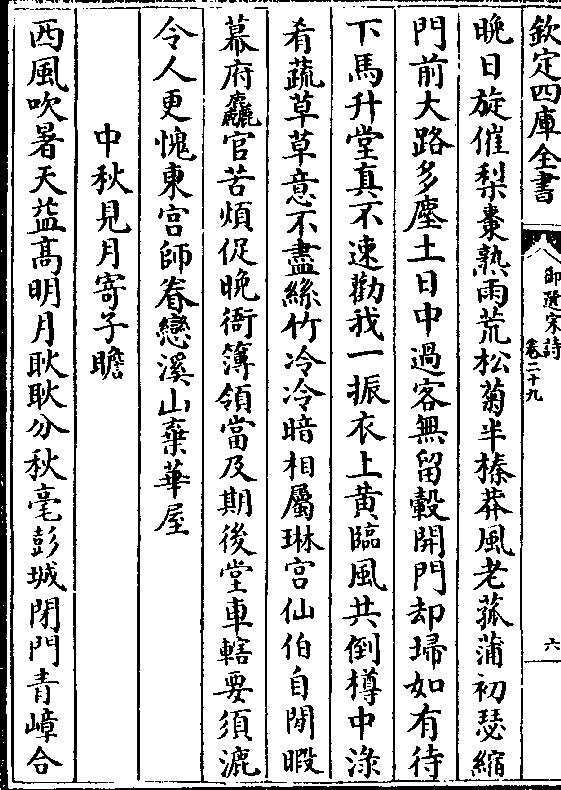 欽定四庫全書
御選宋詩
卷二十九
六
晩日旋催梨棗熟雨荒松菊半榛莽風老菰蒲初瑟縮
門前大路多塵土日中過客無留轂開門却埽如有待
下馬升堂真不速勸我一振衣上黄臨風共倒樽中淥
肴蔬草草意不盡絲竹冷冷暗相屬琳宫仙伯自閒暇
幕府麤官苦煩促晩衙簿領當及期後堂車轄要須漉
令人更愧東宫師眷戀溪山棄華屋
中秋見月寄子瞻
西風吹暑天益髙明月耿耿分秋毫彭城閉門青嶂合